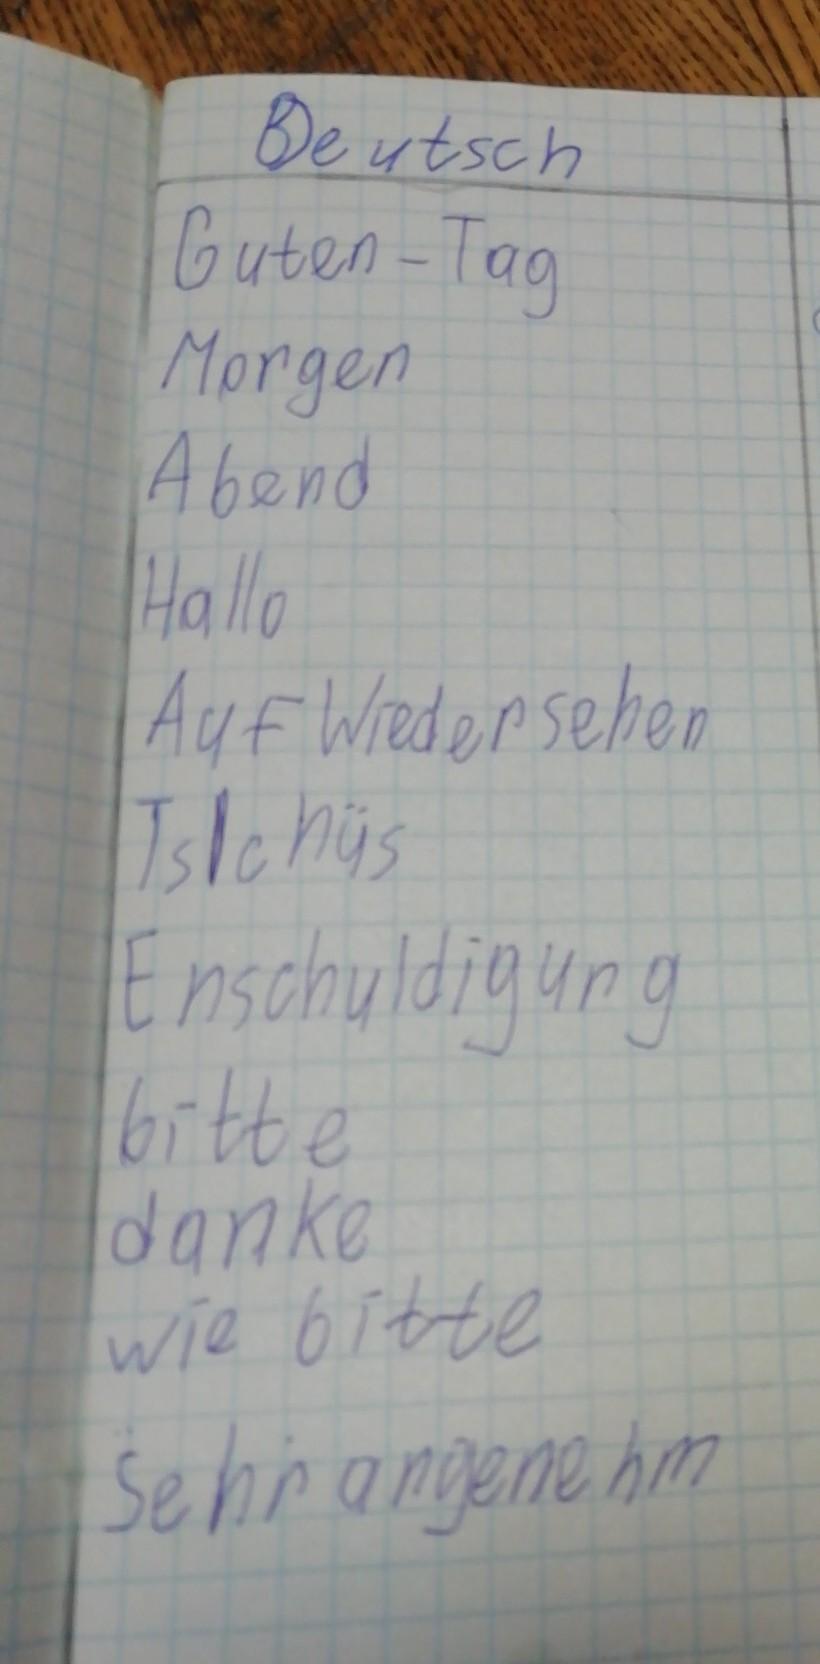 Deutsch
Guten-Tag
Morgen
Abend
Hallo
Auf Wiedersehen
Tslchüs
Enschuldigung
bitte
danke
wie bitte
Sehr angenehm